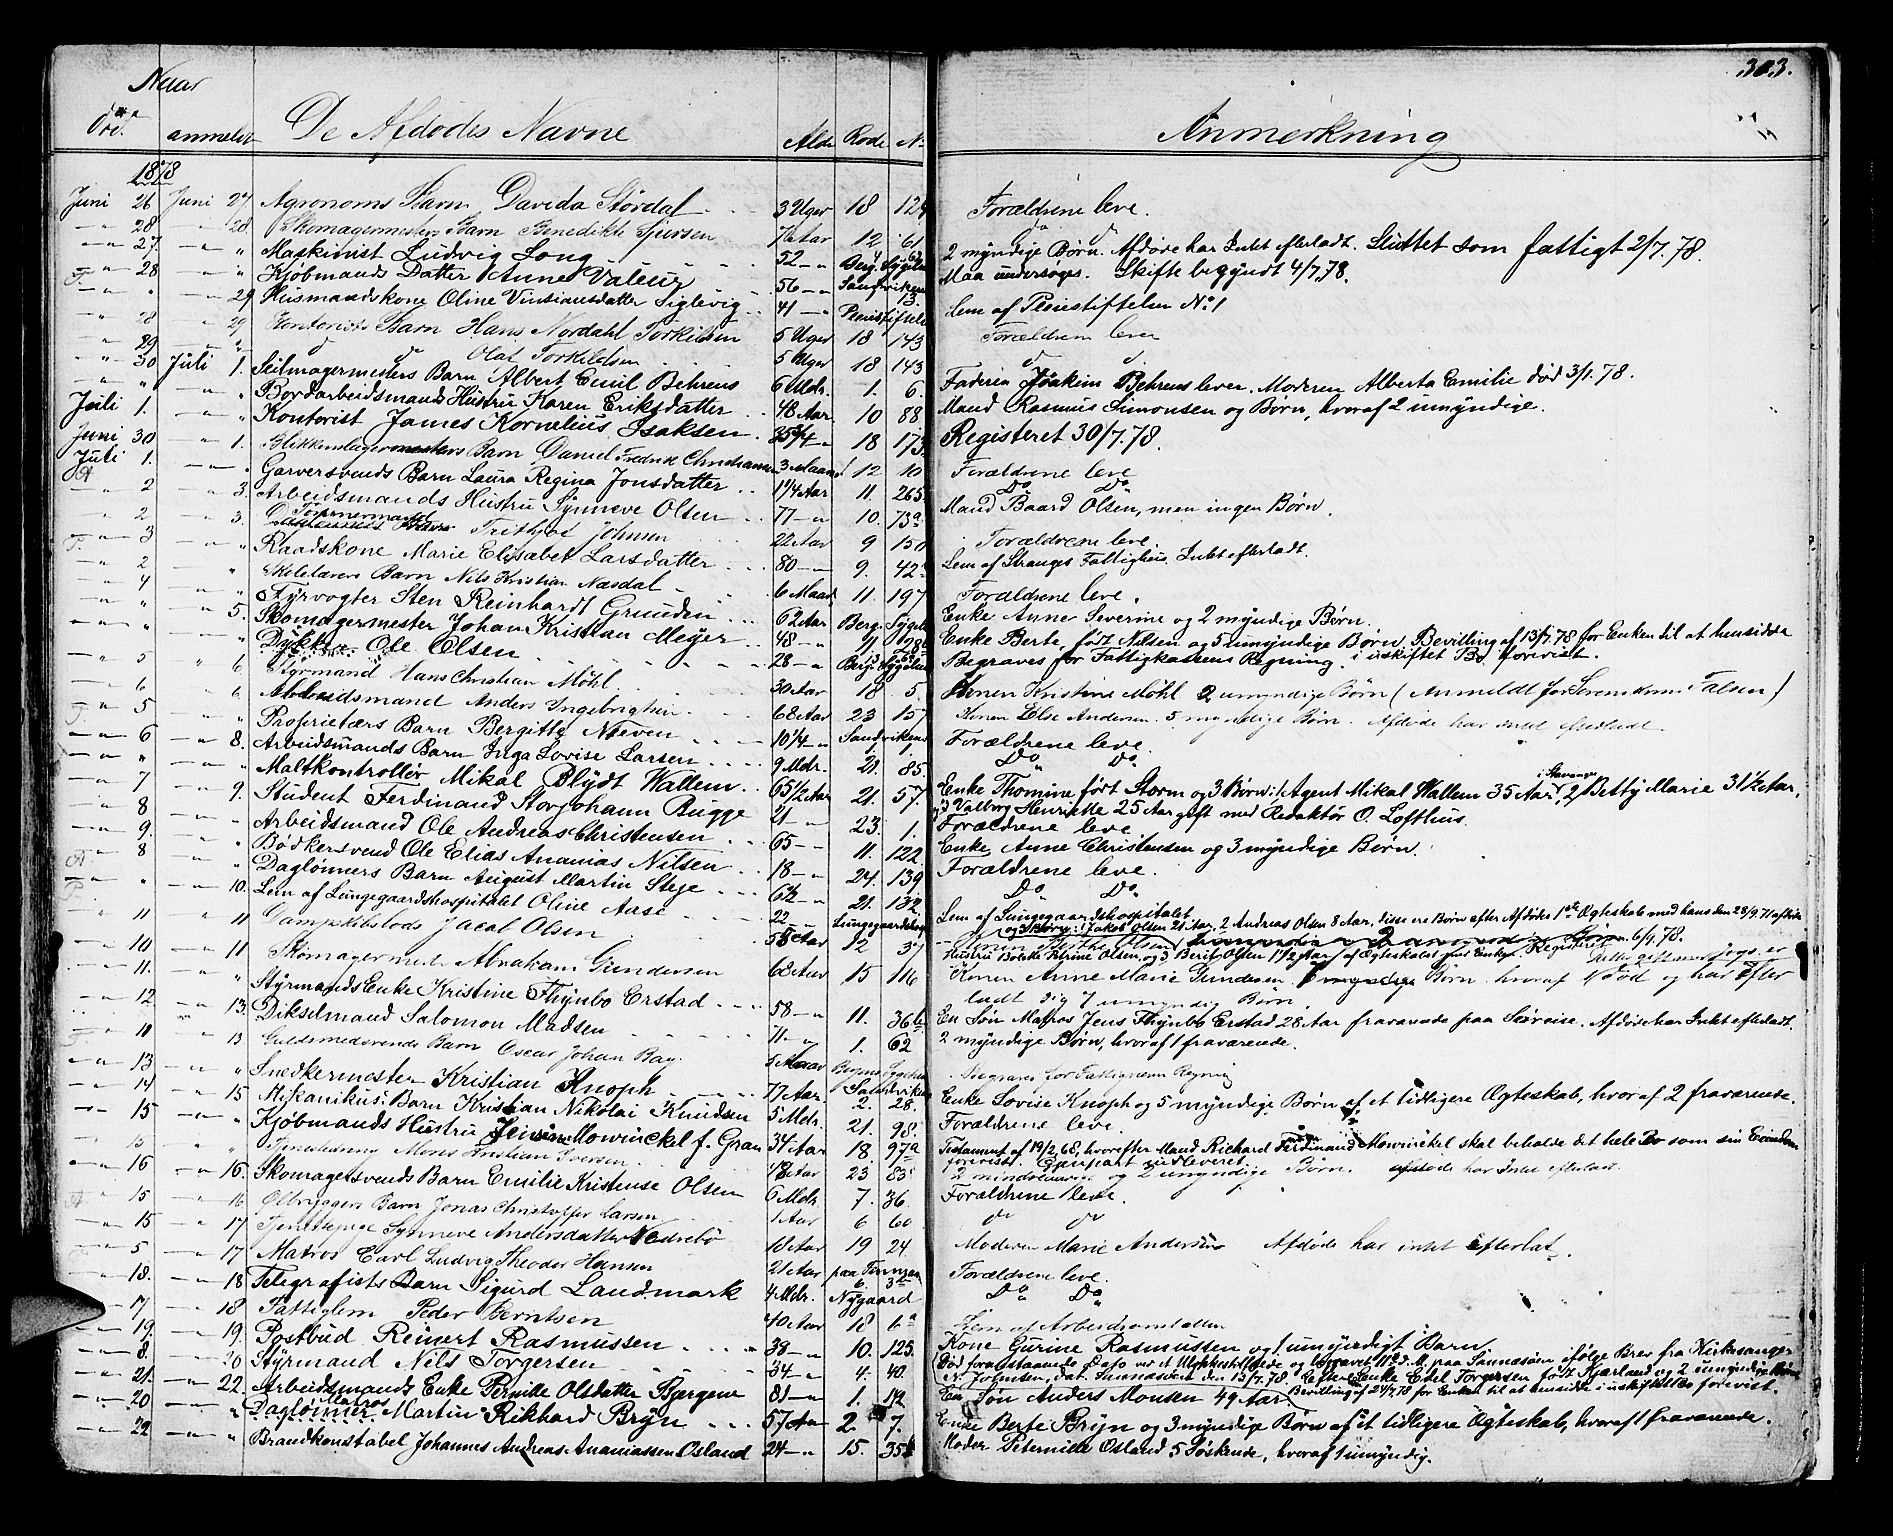 303.
Naar
død. anmeldt De Afdødes Navne Alder Rode No Anmerkning
1878
Juni 26 Juni 27. Agronoms Barn Davida Størdal 3 Uger 18 124 Forældrene leve.
28 28. Skomagermesters Barn Benedikte Sjursen Aar 12 61 do do
27. " Maskinist Ludvig Long 52 Berg. Sygehus 2 myndige Børn. Afdøde har Intet efterladt. Sluttet som fattigt 2/7.78.
F. 28 " Kjøbmands Datter Anne Valeur 56 Sandviken 13. Maa undersøges. Skifte begyndt 4/7.78.
" 29 Husmandskone Oline Siglevig 41 Pleiestiftelse Lem af Pleiestiftelsen No 1
28 29 Kontorists Barn Hans Nordahl Torkildsen 5 Uger 18 143 Forældrene leve
29 " d d Olaf Torkildsen 5 Uger 18 143 d d.
30 Juli 1. Seilmagermesters Barn Albert Emil Behrens 6 Mdr. 1. 6. Faderen Joakim Behrens lever. Moderen Alberta Emilie død 3/1.78.
" " Bordarbeidsmands Hustru Karen Eriksdatter 48 Aar 10 88 Mand Rasmus Simonsen og Børn, hvoraf 2 umyndige.
Juli 1. " Kontorist James Kornelius Isaksen 35 3/4 18 173 Registeret 30/7.78.
Juni 30 1. Blikkenslagermesters Barn Daniel Fredrik Christiansen 3 Maaned 12 10 Forældrene leve
Juli 1. " Garversvends Barn Laura Regina Jonsdatter 1 1/4 Aar 11. 265. Do Do
2 3. Arbeidsmands Hustru Synneve Olsen 77 10. 73a Mand Baard Olsen, men ingen Børn.
2 3. Frithjof Johnsen 22 Aar 9 150 Forældrene leve.
F. 3 " Raadskone Marie Elisabet Larsdatter 80 9. 42. Lem af Stranges Fattighus. Intet efterladt.
2 " Skolelærers Barn Nils Kristian Næsdal 6 Maan. 11. 197 Forældrene leve.
4 " Fyrvogter Sten Reinhardt Grundin 62 Aar Berg. Sygeh. Enke Anne Severine og 2 myndige Børn.
" 5. Skomagermester Johan Kristian Meyer 48 11 Enke Berte, født Nilsen og 5 umyndige Børn. Bevilling af 13/7.78 for Enken til at hensidde
" " Ole Olsen 28 Berg. Sygehus Begraves for Fattigkassens Regning. i uskiftet Bo forevist.
5 6 Styrmand Hans Christian Mohl 30 Aar 18 5. Konen Kristine Mohl 2 umyndige Børn (Anmeldt for Sorenskriver Falsen)
6 6 Arbeidsmand Anders Ingebrigtsen 68 Aar 23 157 Konen Else Andersen. 5 myndige Børn. Afdøde har intet efterladt.
F. 5 " Proprietærs Barn Bergitte Nieven 10 1/4 Sandviken Forældrene leve.
6 8. Arbeidsmands Barn Inga Lovise Larsen 9 Mdr. 21. 85. Do Do
" " Maltkontrollør Mikal Blydt Wallem 65 1/2 Aar 21. 57. Enke Thomine født Storm og 3 Børn: 1, Agent Mikal Wallem 35 Aar, i Stavanger 2, Betty Marie 31 1/2 Aar,
7 9. Student Ferdinand Storjohann Bugge 21 23. 1. 3, Valborg Henriette 25 Aar gift med Redaktør O. Lofthus.
Forældrene leve.
8 " Arbeidsmand Ole Andreas Christensen 65 11. 122. Enke Anne Christensen og 3 myndige Børn.
9. " Bødkersvend Ole Elias Ananias Nilsen 18 24. 139 Forældrene leve.
8 " Dagløinners Barn August Martin Steje 21. 132. Do Do
" 10. Lem af Lungegaardshospitalet Oline Aase 22 Lungegaardshosp. Lem af Lungegaardshospitalet
11 11 Dampskibslods Jacob Olsen 58 Aar 12 37 og 3 Børn: 1 Jakob Olsen 21 Aar, 2 Andreas Olsen 8 Aar, disse ere Børn efter Afdødes 1ste Ægteskab med hans den 28/9.71 afdøde
Hustru Bolette Katrine Olsen, og 3 Berit Olsen 1 1/2 Aar af Ægteskabet med Enken. Registreret 6/9.78.
10 11 Skomagerm. Abraham Gundersen 68 Aar 15 116 Konen Anne Marie Gundersen. Børn hvoraf 1 Død og har efter
ladt sig 7 umyndig Børn.
11. " Styrmands Enke Kristine Thynbo Erstad 58 11. 36b En Søn Matros Jens Thynbo Erstad 28 Aar fraværende paa Søreise. Afdøde har Intet efterladt.
12 13. Dikselmand Salomon Madsen 71 1. 62 2 myndige Børn, hvoraf 1 fraværende.
F. 11 13 Guldsmedsvends Barn Oscar Johan Bay 5 Maan Bergens Sygehus Begraves for Fattigvæsens Regning
13 " Snedkermester Kristian Knoph 77 Aar Sandviken Enke Lovise Knoph og 5 myndige Børn af et tidligere Ægteskab, hvoraf 2 fraværende.
14 15 Mekanikus' Barn Kristian Nikolai Knudsen 5 Mdr. 2. 28. Forældrene leve.
15 " Kjøbmands Hustru Mowinckel f. Gran 34 Aar 21. 98. Testament af 19/2.68, hvorefter Mand Richard Ferdinand Mowinckel skal beholde det hele Bo som sin Eiendom
forevist.
" Mons Kristian Iversen 48 Aar 18 97a 2 mindreaarige og 2 umyndige Børn. Afdøde har Intet efterladt.
16 16. Skomagersvends Barn Emilie Kristense Olsen 6 Mdr. 23 83 Forældrene leve.
15 16 Ølbryggers Barn Jonas Christoffer Larsen 1 Aar 7. 36. do do
15 17 Tjenestepige Synneve Andersdatter Nedrebø 18 Aar 6 60 Moderen Marie Andersen Afdøde har intet efterlat.
5 17 Matros Carl Ludvig Theodor Hansen 21 Aar 19 24. Forældrene leve.
18. 18 Telegrafists Barn Sigurd Landmark 4 Mdr. Nygaard Do Do
17 18 Fattiglem Peder Berntsen 40 Aar 18 6a Lem af Arbeidsanstalten
19. 19. Postbud Reinert Rasmussen 38 10. 125. Kone Gurine Rasmussen og 1 umyndigt Barn
8. 20 Styrmand Nils Torgersen 34 4. 40. Død foranstaaende Dato ved et Ulykkestilfælde og begravet 11te d. M. paa Sannesøen ifølge Brev fra Kirkesanger
N. Johnsen, dat. Sannesøen den 13/7.78. Efterl. Enke Edel Torgersen født Kjærland og 2 umyndige Børn
Bevilling af 24/7.78 for Enken til at hensidde i uskiftet Bo forevist.
21. 22. Arbeidsmands Enke Pernille Olsdatter Bjergene 81 1. 12 En Søn Anders Monsen 49 Aar
20 " Dagløinner Matros Martin Rikhard Bryn 57 Aar 2. 7. Enke Berte Bryn og 3 myndige Børn af et tidligere Ægteskab, hvoraf 1 fraværende.
22 " Brandkonstabel Johannes Andreas Ananiassen Osland 24 15. 35b Moder Peternille Osland 5 Søskende, hvoraf 1 umyndig.